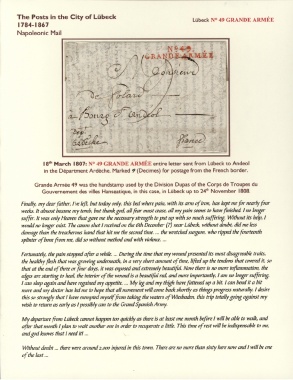 The Posts in the City of Lübeck
1784-1867
Napoleonic Mail
Lübeck Nº 49 GRANDE ARMÉE
Nº 49
GRANDE ARMÉE
Monsieur
De
a Bourg St Andeol
Ardèche
France
10th March 1807: Nº 49 GRANDE ARMÉE entire letter sent from Lübeck to Andeol
in the Départment Ardèche. Marked 9 (Decimes) for postage from the French border.
Grande Armée 49 was the handstamp used by the Division Dupas of the Corps de Troupes du
Gouvernement des villes Hanseatique, in this case, in Lübeck up to 24th November 1808.
Finally, my dear father, I've left, but today only, this bed where pain, with its arm of iron, has kept me for nearly four
weeks. It almost became my tomb, but thank god, all fear must cease, all my pain seems to have finished. I no longer
suffer. It was only Heaven that gave me the necessary strength to put up with so much suffering. Without its help, I
would no longer exist. The canon shot I received on the 6th December (?) near Lübeck, without doubt, did me less
damage than the treacherous hand that hit me the second time ... the wretched surgeon, who ripped the fourteenth
splinter of bone from me, did so without method and with violence. ...
Fortunately, the pain stopped after a while. ... During the time that my wound presented its most disagreeable traits,
the healthy flesh that was growing underneath, in a very short amount of time, lifted up the tendons that covered it, so
that at the end of three or four days, it was exposed and extremely beautiful. Now there is no more inflammation, the
edges are starting to heal, the interior of the wound is a beautiful red, and more importantly, I am no longer suffering.
I can sleep again and have regained my appetite. ... My leg and my thigh have fattened up a bit. I can bend it a bit
more and my doctor has led me to hope that all movement will come back shortly as things progress naturally. I desire
this so strongly that I have exempted myself from taking the waters of Wiesbaden, this trip totally going against my
wish to return as early as I possibly can to the Grand Spanish Army.
My departure from Lübeck cannot happen too quickly as there is at least one month before I will be able to walk, and
after that month I plan to wait another one in order to recuperate a little. This time of rest will be indispensable to me,
and god knows that I need it! ...
Without doubt ... there were around 2.000 injured in this town. There are no more than sixty here now and I will be one
of the last ...